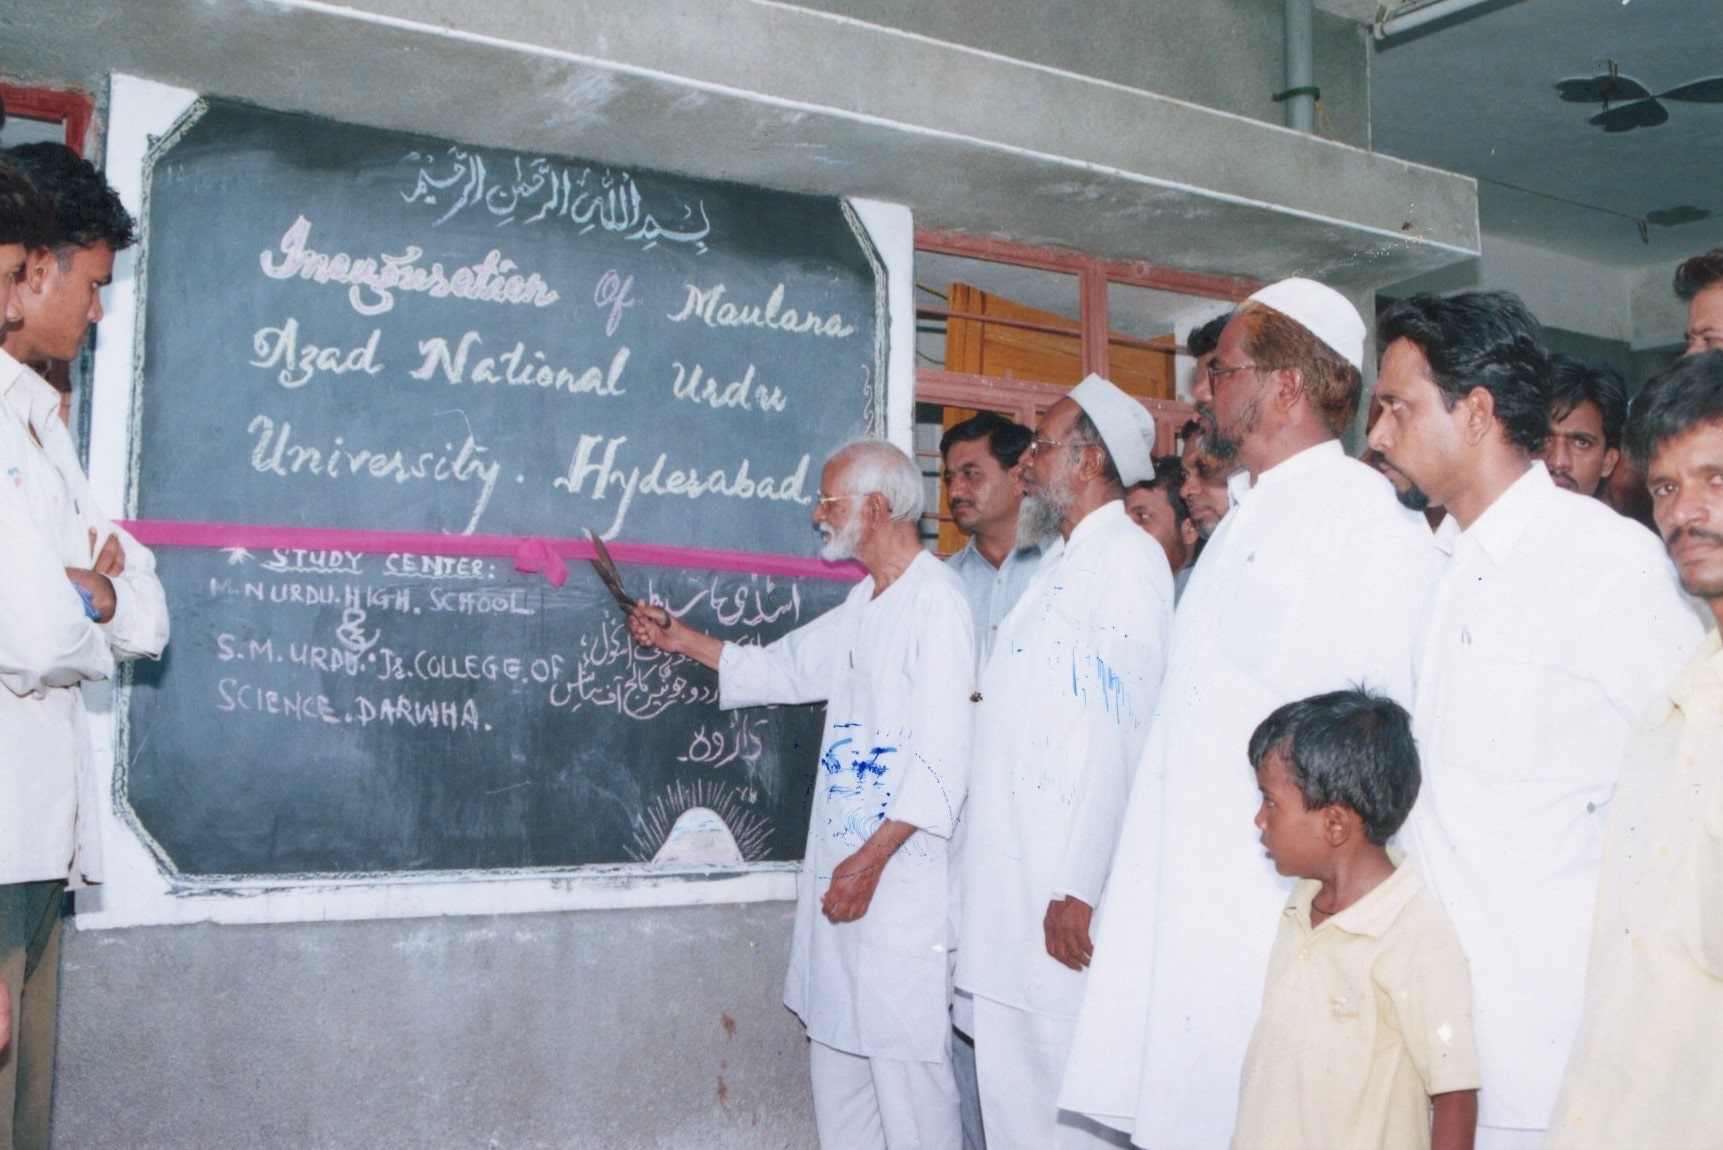 بِسْمِ اللّٰهِ الرَّحْمٰنِ الرَّحِيْمِ
Inauguration Of Maulana
Azad National Urdu
University. Hyderabad
* STUDY CENTER:
M.N URDU.HIGH.SCHOOL
&
S.M.URDU.Jr.COLLEGE.OF
SCIENCE.DARWHA.
اسٹڈی
اسکول،
اردو جونیئر کالج آف سائنس
دارَوہ۔